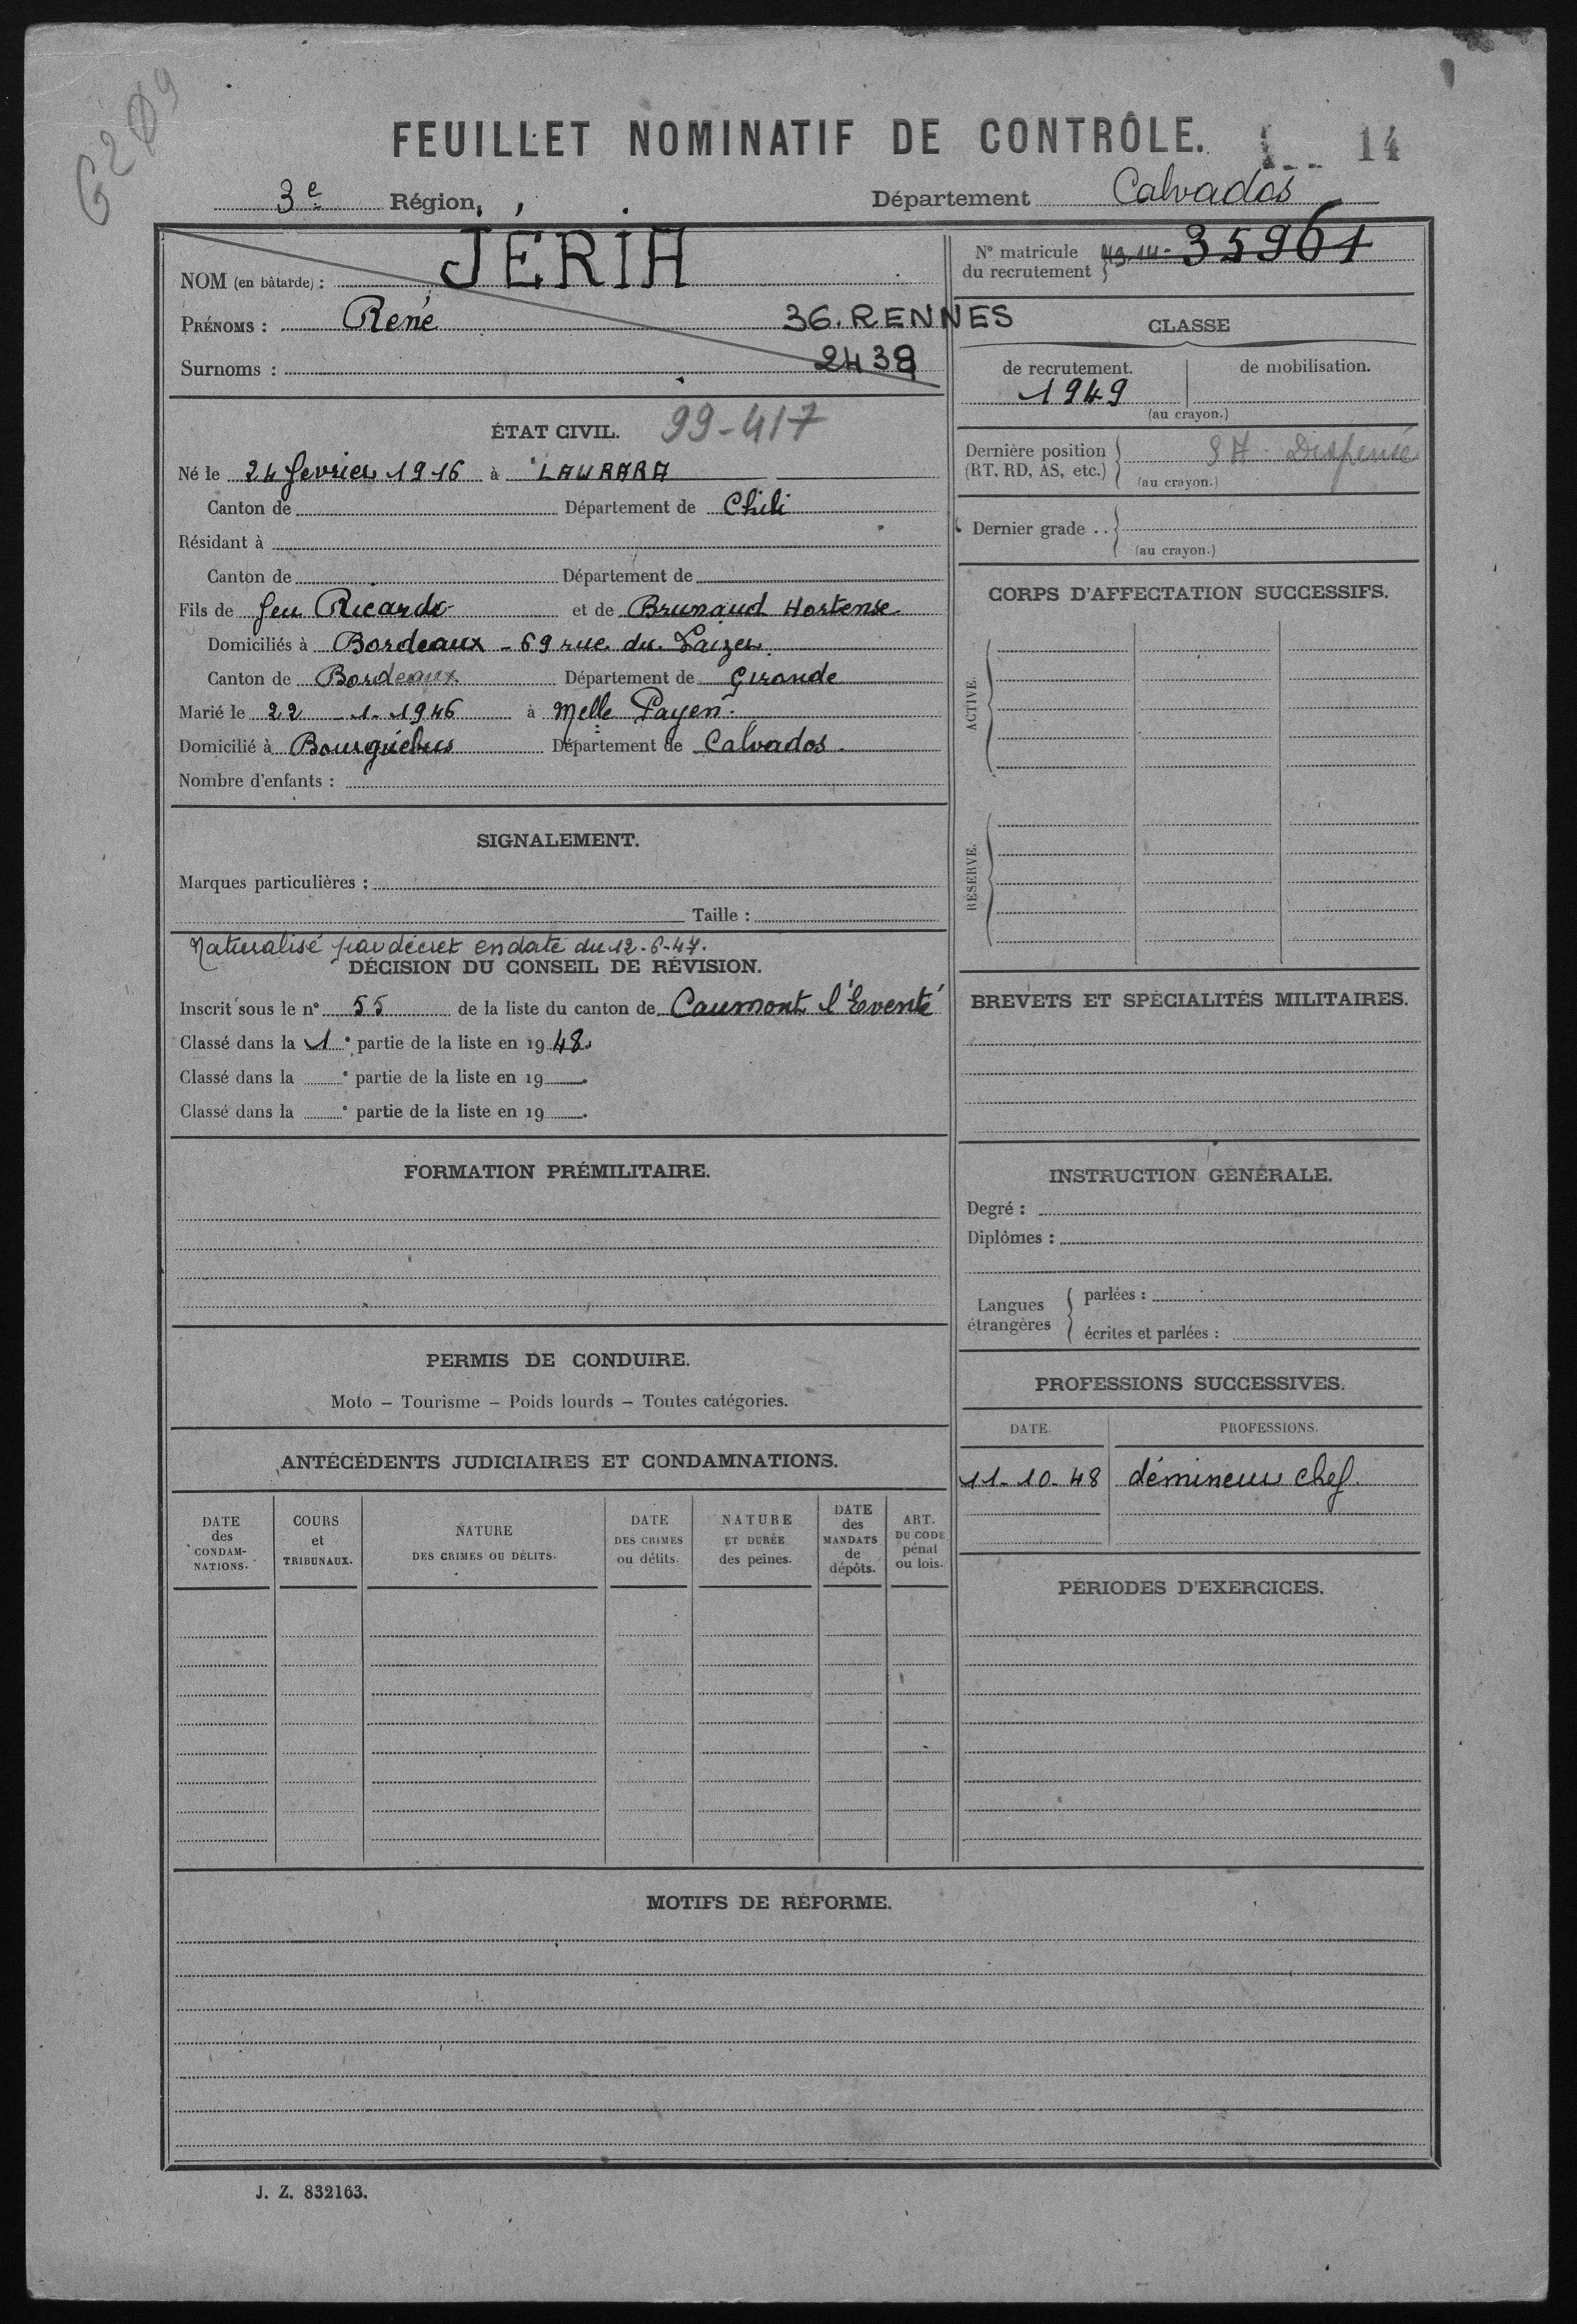 G209
FEUILLET NOMINATIF DE CONTRÔLE.
14
3e Région,
Département Calvados
NOM (en bâtarde) : JÉRIA
PRÉNOMS : René
36. RENNES
Surnoms : 2438
N° matricule du recrutement 35961
CLASSE
de recrutement. 1949
de mobilisation.
(au crayon.)
Dernière position (RT, RD, AS, etc.) Dispensé
(au crayon.)
Dernier grade ..
(au crayon.)
ÉTAT CIVIL. 99-417
Né le 24 fevrier 1916 à LAWRARA
Canton de Département de Chili
Résidant à
Canton de Département de
Fils de feu Ricardo et de Brunaud Hortense
Domiciliés à Bordeaux - 69 rue du
Canton de Bordeaux Département de Gironde
Marié le 22 - 1 - 1946 à Melle Payen.
Domicilié à Bourguébus Département de Calvados.
Nombre d'enfants :
SIGNALEMENT.
Marques particulières :
Taille :
Naturalisé par décret en date du 12-6-47.
DÉCISION DU CONSEIL DE RÉVISION.
Inscrit sous le n° 55 de la liste du canton de Caumont l'Eventé
Classé dans la 1e partie de la liste en 1948.
Classé dans la e partie de la liste en 19 .
Classé dans la e partie de la liste en 19 .
FORMATION PRÉMILITAIRE.
PERMIS DE CONDUIRE.
Moto – Tourisme – Poids lourds – Toutes catégories.
ANTÉCÉDENTS JUDICIAIRES ET CONDAMNATIONS.
DATE des CONDAMNATIONS.
COURS et TRIBUNAUX.
NATURE DES CRIMES OU DÉLITS.
DATE DES CRIMES ou délits.
NATURE ET DURÉE des peines.
DATE des MANDATS de dépôts.
ART. DU CODE pénal ou lois.
CORPS D'AFFECTATION SUCCESSIFS.
ACTIVE.
RÉSERVE.
BREVETS ET SPÉCIALITÉS MILITAIRES.
INSTRUCTION GÉNÉRALE.
Degré :
Diplômes :
Langues étrangères
parlées :
écrites et parlées :
PROFESSIONS SUCCESSIVES.
DATE. PROFESSIONS.
11-10-48 démineur chef.
PÉRIODES D'EXERCICES.
MOTIFS DE RÉFORME.
J. Z. 832163.